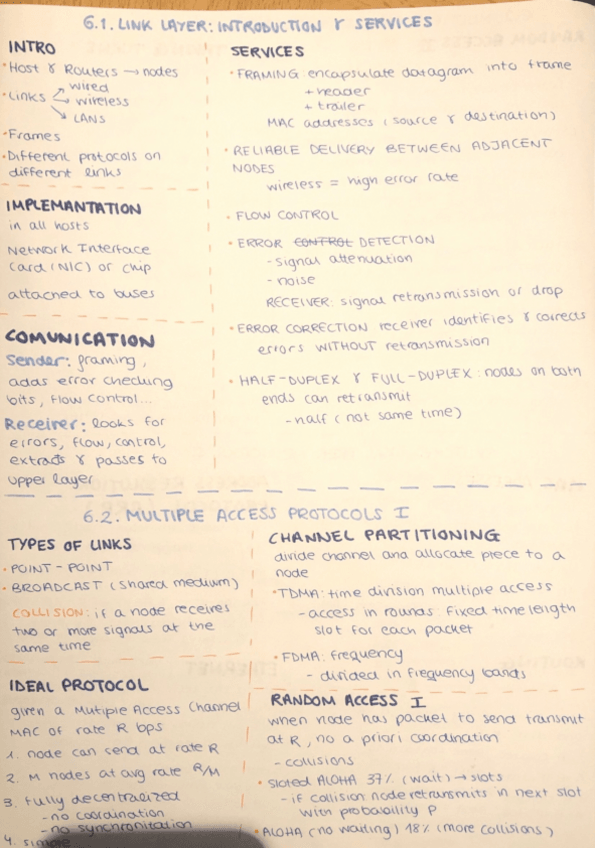 6.1. LINK LAYER: INTRODUCTION & SERVICES
INTRO
• Host & Routers → nodes
• Links → wired
→ wireless
→ LANs
• Frames
• Different protocols on
different links
IMPLEMANTATION
in all hosts
Network Interface
Card (NIC) or chip
attached to buses
COMUNICATION
Sender: framing,
adds error checking
bits, flow control...
Receiver: looks for
errors, flow, control,
extracts & passes to
upper layer
SERVICES
• FRAMING encapsulate datagram into frame
+ header
+ trailer
MAC addresses (source & destination)
• RELIABLE DELIVERY BETWEEN ADJACENT
NODES
wireless = high error rate
• FLOW CONTROL
• ERROR CONTROL DETECTION
- signal attenuation
- noise
RECEIVER: signal retransmission or drop
• ERROR CORRECTION receiver identifies & corrects
errors WITHOUT retransmission
• HALF-DUPLEX & FULL-DUPLEX: nodes on both
ends can retransmit
- half (not same time)
6.2. MULTIPLE ACCESS PROTOCOLS I
TYPES OF LINKS
• POINT-POINT
• BROADCAST (shared medium)
COLLISION: if a node receives
two or more signals at the
same time
IDEAL PROTOCOL
given a Mutiple Access Channel
MAC of rate R bps
1. node can send at rate R
2. M nodes at avg rate R/M
3. fully decentralized
- no coordination
- no synchronitation
4.
CHANNEL PARTITIONING
divide channel and allocate piece to a
node
• TDMA: time division multiple access
- access in rounds: fixed time length
slot for each packet
• FDMA: frequency
- divided in frequency bands
RANDOM ACCESS I
when node has packet to send transmit
at R, no a priori coordination
- collisions
• Sloted ALOHA 37% (wait) → slots
- if collision node retransmits in next slot
with probability p
• ALOHA (no waiting) 18% (more collisions)